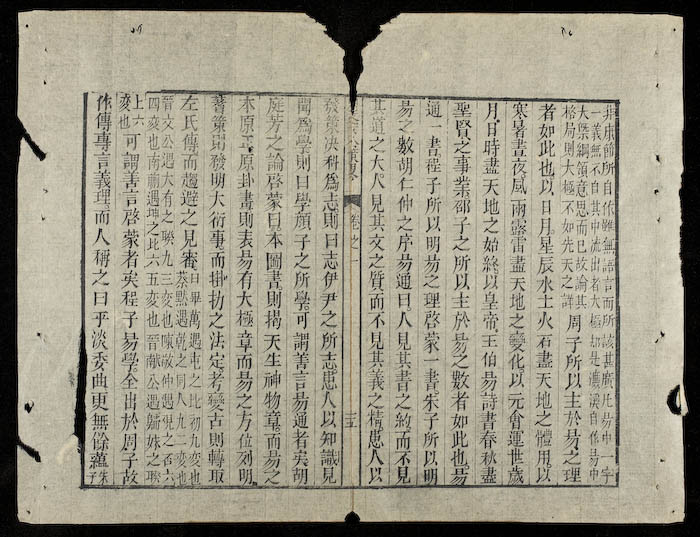 非康節所自作雖無語言而所該甚廣凡易中一字
一義無不自其中流出者大極却是濂溪自作易中
大槩綱領意思而已故論其
格局則大極不如先天之詳 周子所以主於易之理
者如此也以日月星辰水土火石盡天地之體用以
寒暑晝夜風雨露雷盡天地之變化以元會運世歲
月日時盡天地之始終以皇帝王伯易詩書春秋盡
聖賢之事業邵子之所以主於易之數者如此也易
通一書程子所以明易之理啓蒙一書朱子所以明
易之數胡仁仲之序易通曰人見其書之約而不見
其道之大人見其文之質而不見其義之精患人以
卷之一
三五
發策决科爲志則曰志伊尹之所志患人以知識見
聞爲學則曰學顔子之所學可謂善言易通者矣胡
庭芳之論啓蒙曰本圖書則揭天生神物章而易之
本原正原卦畫則表易有大極章而易之方位列明
蓍策則發明大衍章而掛扐之法定考變占則轉取
左氏傳而趨避之見審 曰畢萬遇屯之比初九変也
蔡墨遇乾之同人九二変也
晉文公遇大有之睽九三変也陳敬仲遇觀之否六
四変也南蒯遇坤之比六五変也晉献公遇歸妹之睽
上六
変也 可謂善言啓蒙者矣程子易學全出於周子故
作傳專言義理而人稱之曰平淡委曲更無餘蘊 朱
子